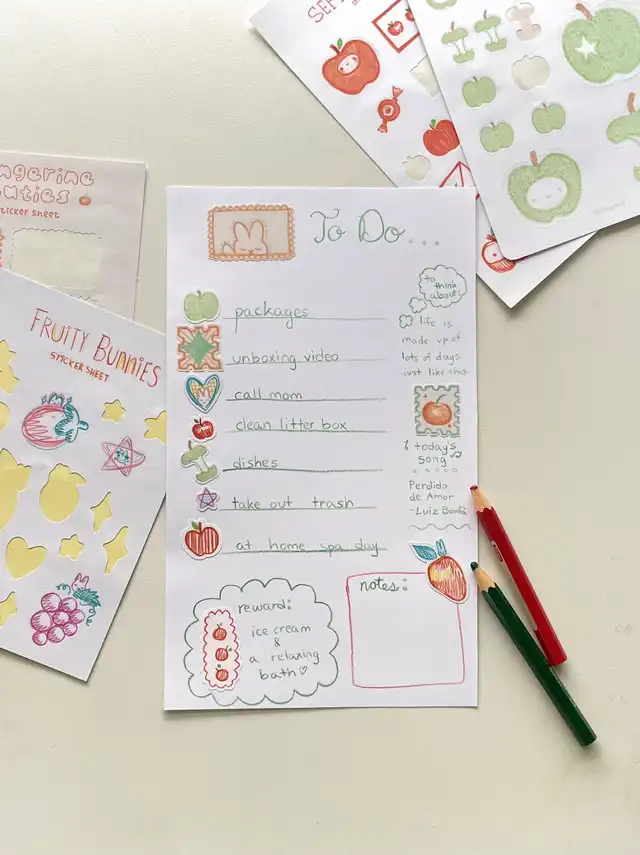 To Do...
packages
unboxing video
call mom
clean litter box
dishes
take out trash
at home spa day
to
think
about:
life is
made up of
lots of days
just like this.
today's
song
Perdido
de Amor
-Luiz Bonfá
reward:
ice cream
&
a relaxing
bath♡
notes:
FRUITY BUNNIES
STICKER SHEET
STICKER SHEET